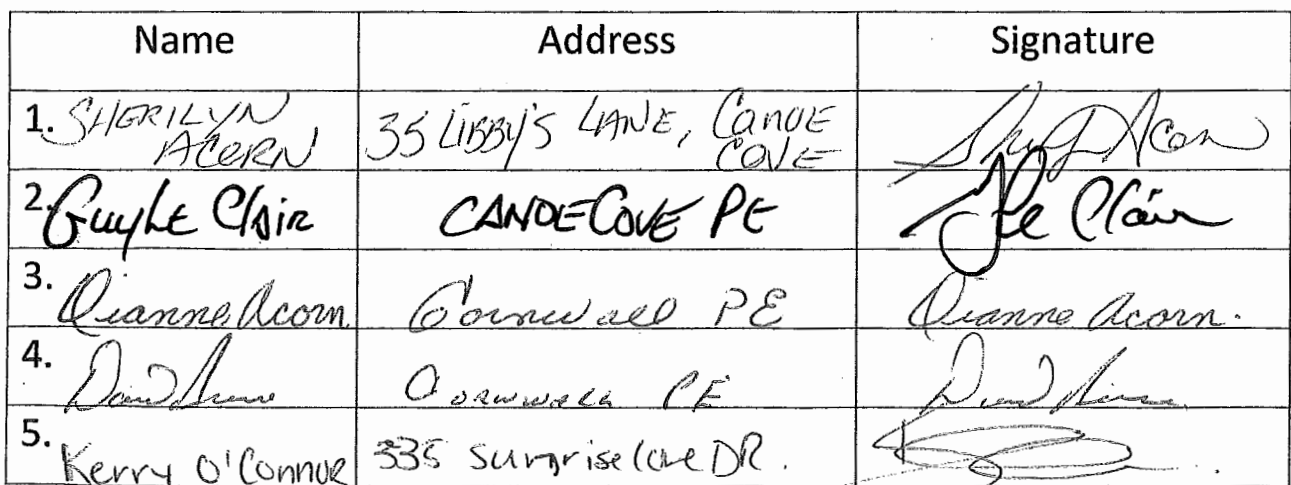 Name Address Signature
1. SHERILYN ACERN 35 LIBBY'S LANE, Canoe COVE
2. Guy Le Clair CANOE COVE PE Le Clair
3. Dianne Acorn Cornwall PE Dianne Acorn.
4. David Cornwall PE David
5. Kerry O'Connor 335 Surprise Cove DR.